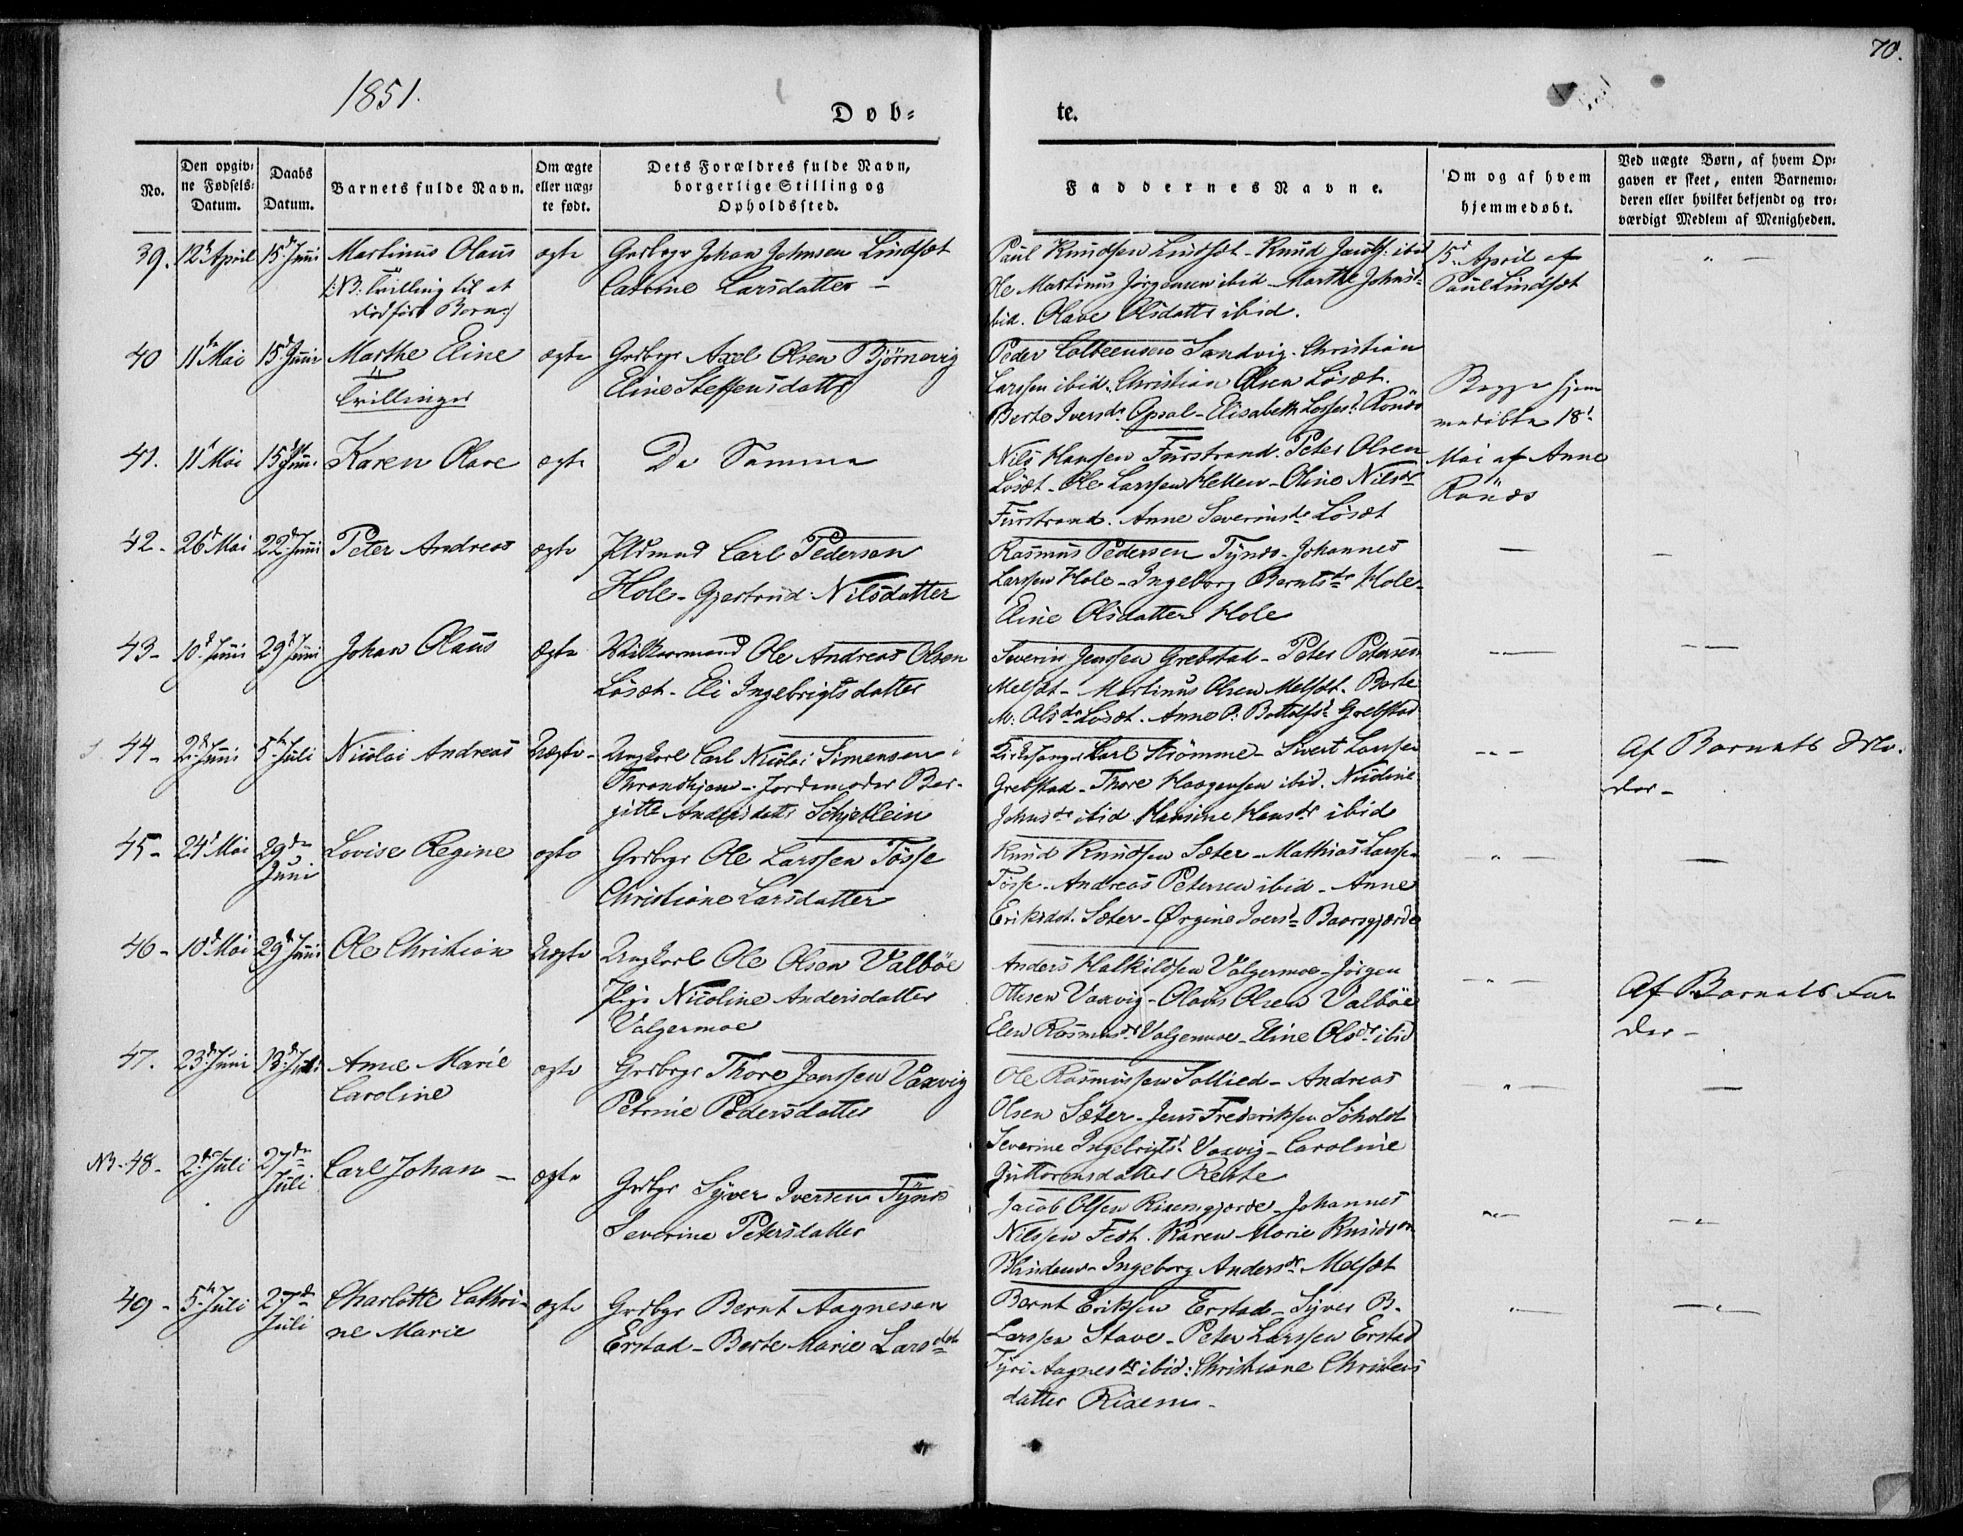 1851.
70.
Døb-
te.
No.
Den opgiv-
ne Fødsels-
Datum.
Daabs
Datum.
Barnets fulde Navn.
Om ægte
eller uæg-
te født.
Dets Forældres fulde Navn,
borgerlige Stilling og
Opholdssted.
Faddernes Navne.
Om og af hvem
hjemmedøbt.
Ved uægte Børn, af hvem Op-
gaven er skeet, enten Barnemo-
deren eller hvilket bekjendt og tro-
værdigt Medlem af Menigheden.
39. 12 April 15 Juni Martinus Olaus ægte Grdbgr Johan Johnsen Lindset
(NB: Tvilling til et
dødfødt Barn)
Cathrine Larsdatter -
Paul Knudsen Lindset - Knud ibid
Ole Martinus Jørgensen ibid - Marthe Johnsd
ibid. Olave Olsdatter ibid.
15 April af
Paul Lindset
40 11 Mai 15 Juni Marthe Eline ægte Grdbgr Axel Olsen Bjørnevig
Tvillinger
Eline Steffensdatter
Peder Sandvig. Christian
Larssen ibid. Christian Olsen Løset.
Berte Iversdr Opsal - Elisabeth Rönæs
Begge hjem
medøbte 18
41. 11 Mai 15 Juni Karen Olave ægte De Samme
Nils Hansen Furstrand. Peter Olsen
Løset - Ole Larssen Hellen - Oline Nilsdr
Furstrand. Anne Severinsdr Løset
Mai af Anne
Rönæs
42. 26 Mai 22 Juni Peter Andreas ægte Carl Pedersen
Hole - Gjertrud Nilsdatter
Rasmus Pedersen Tynæs - Johannes
Larssen Hole - Ingeborg Berntsdr Hole -
Eline Olsdatter Hole
43 - 10 Juni 29 Juni Johan Olaus ægte Vilkaarmand Ole Andreas Olsen
Løset - Eli Ingebrigtsdatter
Severin Jenssen Grebstad - Peter Petersen
Melset - Martinus Olsen Melset. Berte
M. Olsdr Løset. Anne P. Bottolfsd Grebstad
44 - 2 Juni 5 Juli Nicolai Andreas Uægte - Ungkarl Carl Nicolai Simensen i
Throndhjem - Jordemoder Ber-
gitte Andersdatter Schjetlein
Kirkesanger Carl Strömme - Sivert Larssen
Grebstad - Thore Haagensen ibid. Nicoline
Johnsdr ibid Hansine Hansdr ibid
Af Barnets Mo-
der -
45 - 24 Mai 29 Juni Lovise Regine ægte Grdbgr Ole Larssen Tösse
Christiane Larsdatter
Knud Knudsen Sæter - Mathias Larssen
Tösse - Andreas Petersen ibid - Anne
Eriksdat. Sæter - Ørgine Iversd Baarsgjærde
46 - 10 Mai 29 Juni Ole Christian Uægte Ungkarl Ole Olsen Valbøe
Pige Nicoline Andersdatter
Valgermoe
Anders Halkildsen Valgermoe - Jörgen
Ottesen Vaxvig - Olaus Olsen Valbøe
Elen Rasmusdr Valgermoe - Eline Olsdr ibid
Af Barnets Fa-
der -
47. 23 Juni 13 Juli Anne Marie ægte Grdbgr Thore Jenssen Vaxvig
Caroline
Petrine Pedersdatter
Ole Rasmussen Sollied - Andreas
Olsen Sæter - Jens Frederiksen Søholdt
Severine Ingebrigtsd Vaxvig - Caroline
Guttormsdatter Rekte
NB - 48 - 2 Juli 27 Juli Carl Johan - ægte Grdbgr Syver Iversen Tynæs
Severine Petersdatter
Jacob Olsen Rixemgjærde - Johannes
Nilssen Fedt. Karen Marie Knudsdr
Blindem - Ingeborg Andersdr Melset
49 - 5 Juli 27 Juli Charlotte Cathri- ægte Grdbgr Bernt Aagnesen
ne Marie
Erstad - Berte Marie Larsdatr
Bernt Eriksen Erstad - Syver B.
Larssen Stave - Peter Larssen Erstad
Tyri Aagnesdr ibid: Christiane Christens
datter Rixem -